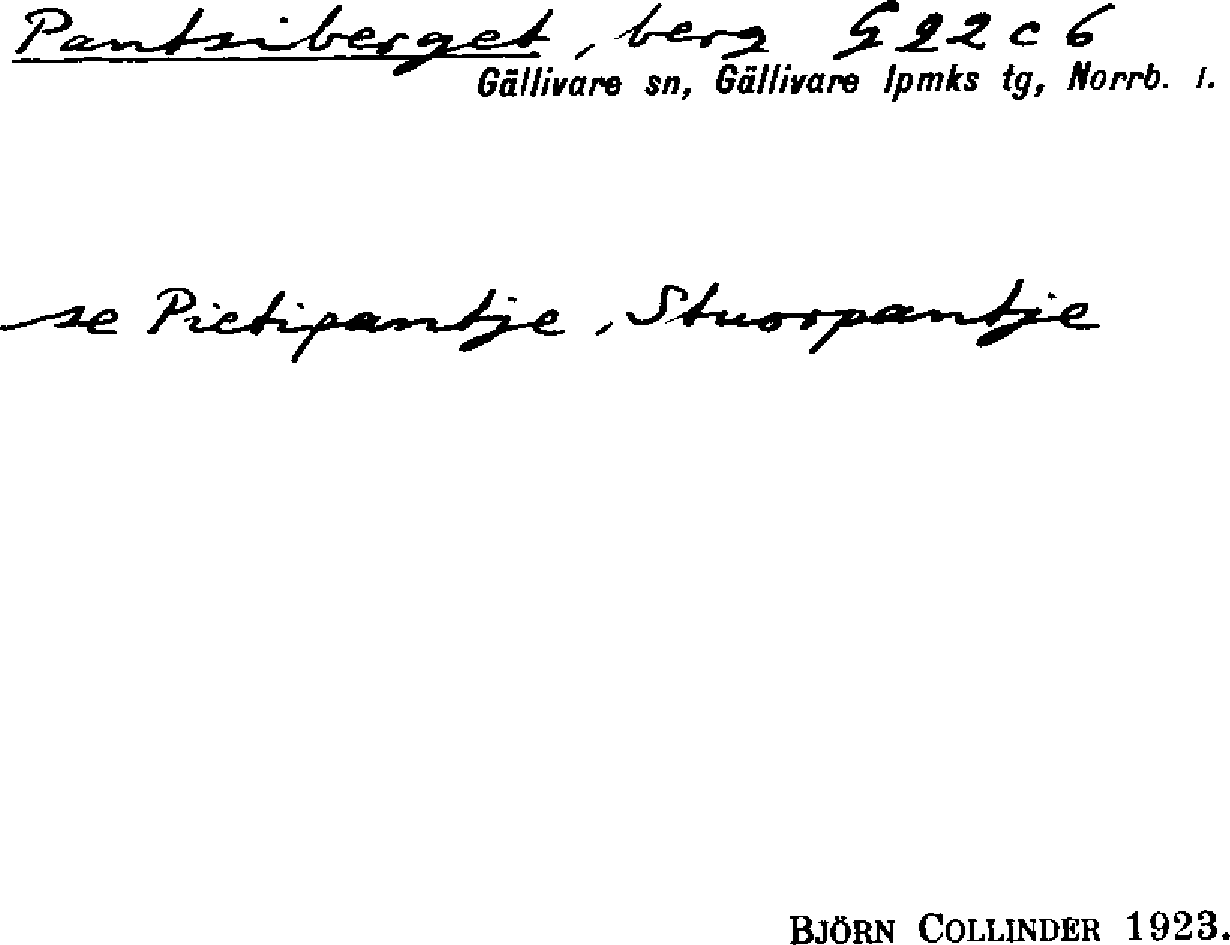 Pantsiberget, berg G22c6
Gällivare sn, Gällivare lpmks tg, Norrb. l.
se Pietipantje, Stuorpantje
BJÖRN COLLINDER 1923.